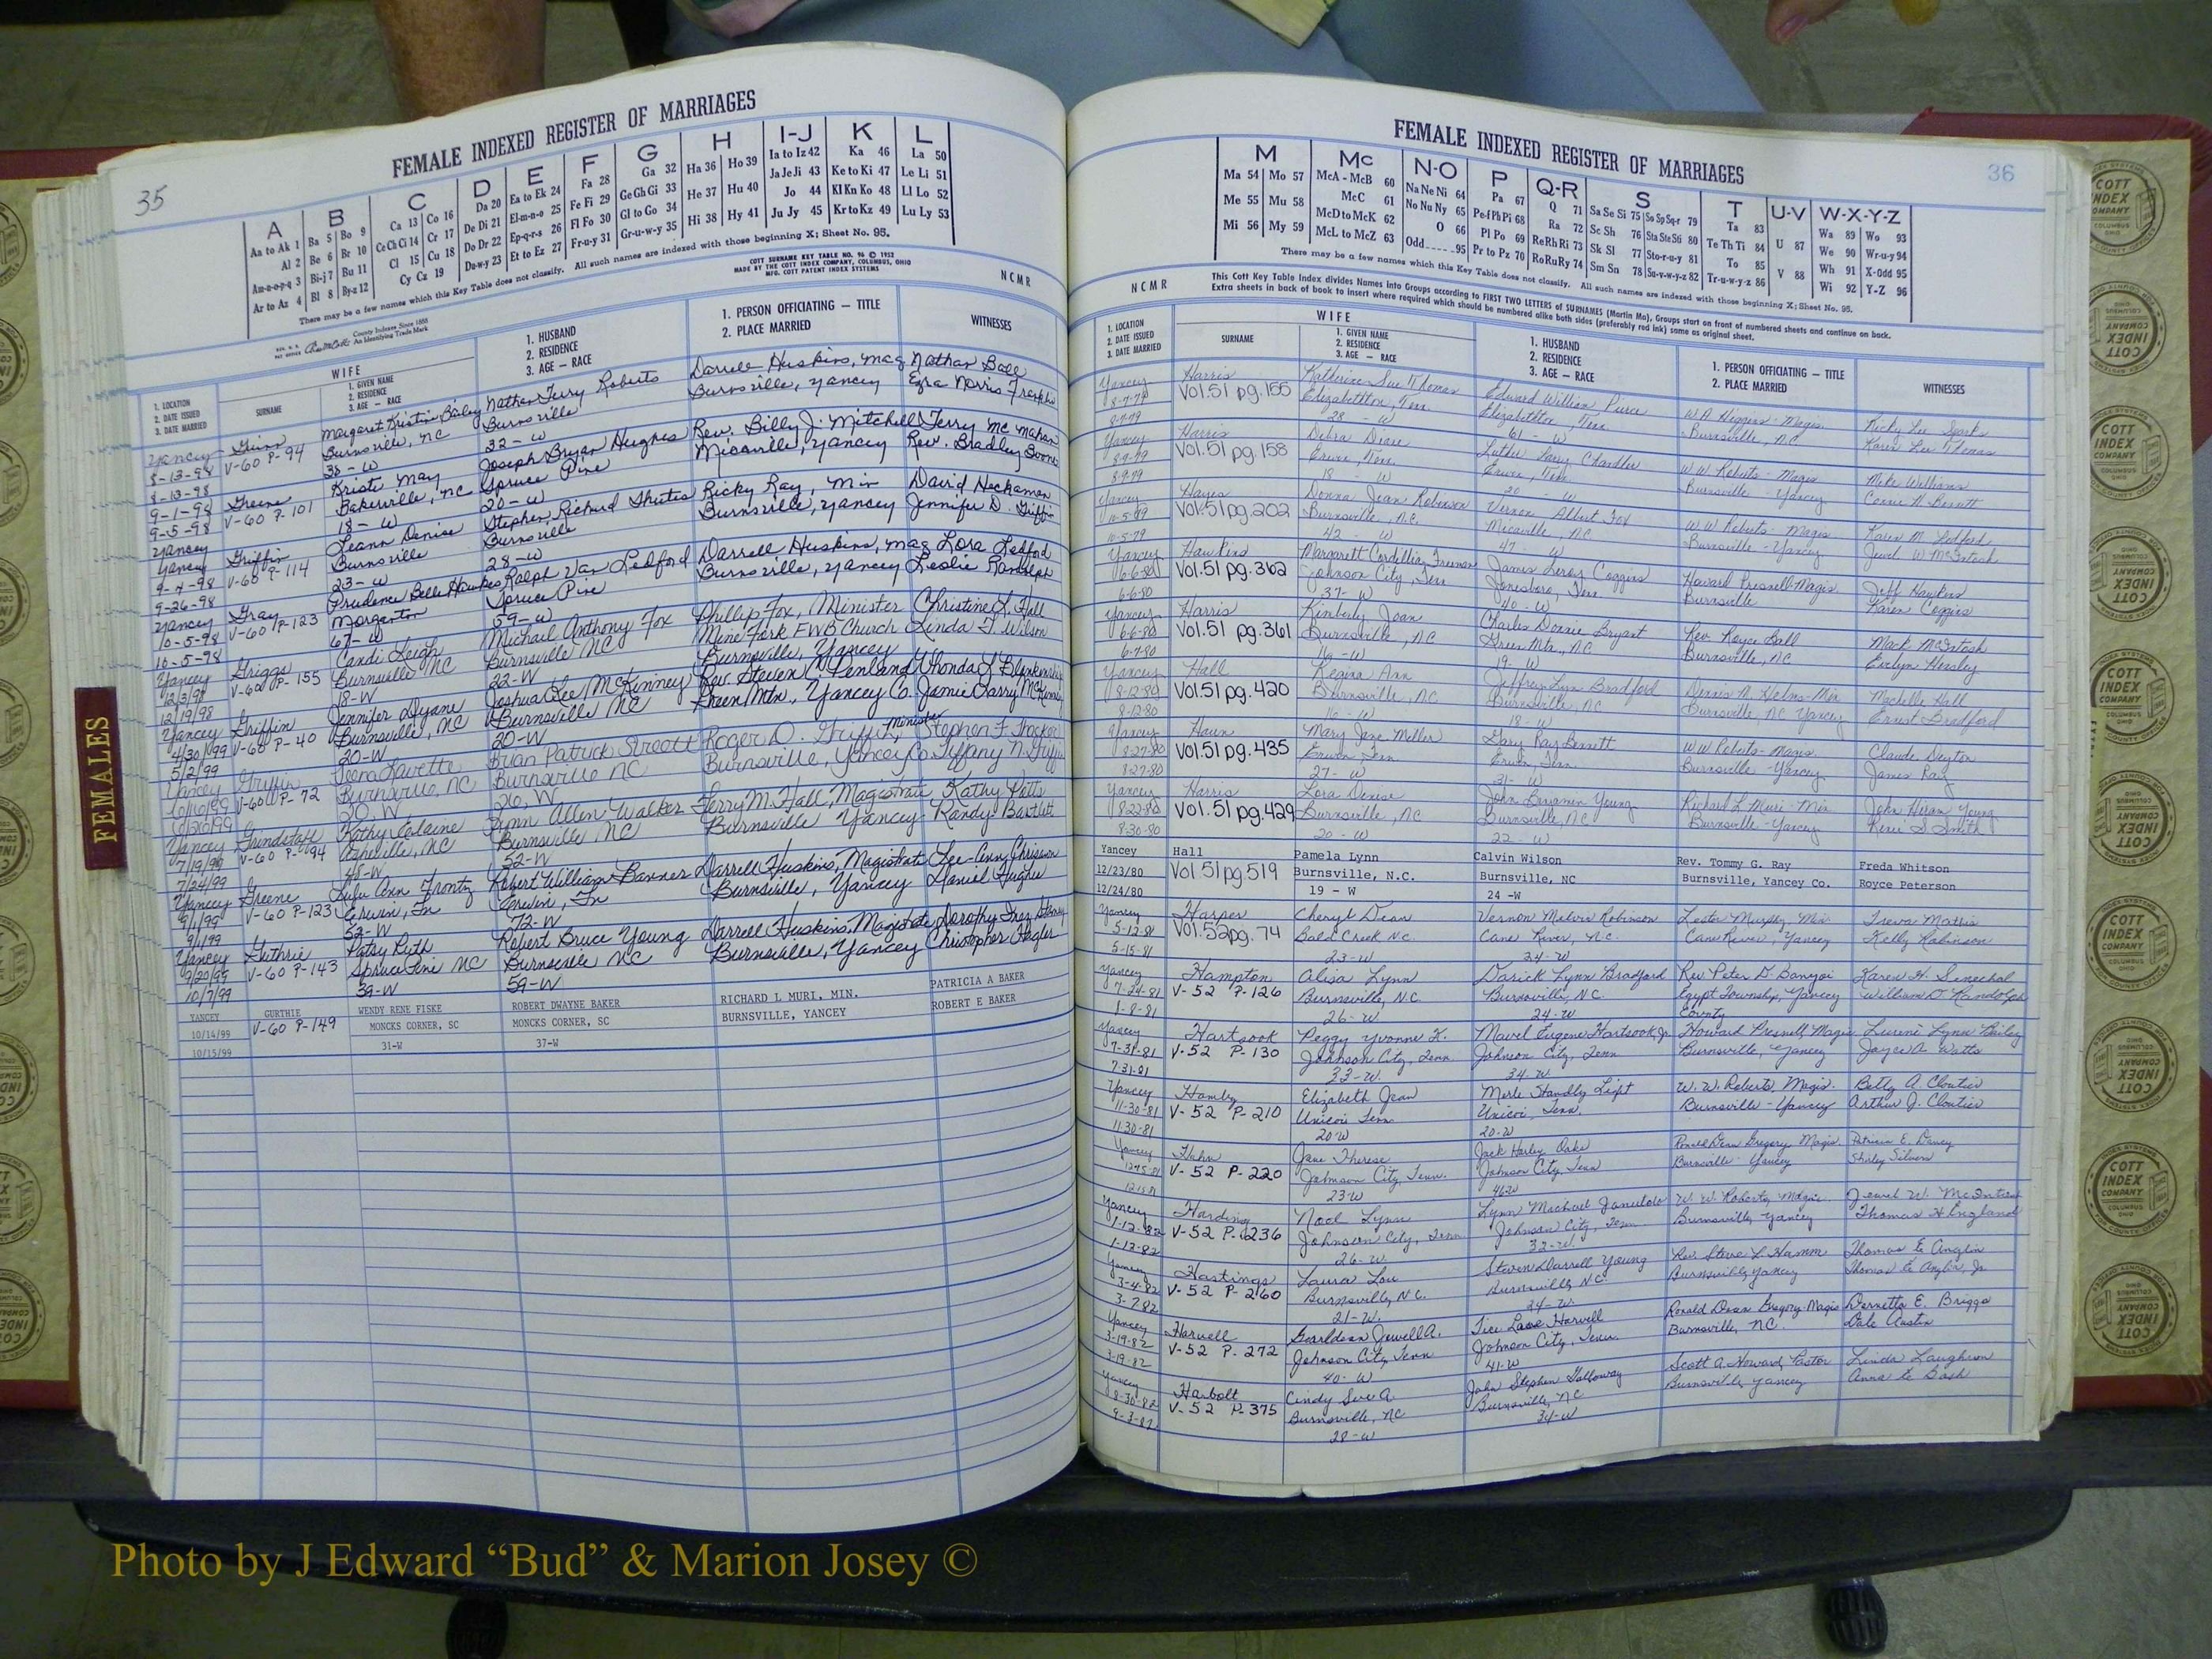 35
FEMALE INDEXED REGISTER OF MARRIAGES
A
Aa to Ak 1
Al 2
Am-n-o-p-q 3
Ar to Az 4
B
Ba 5 Bo 9
Be 6 Br 10
Bi-j 7 Bu 11
Bl 8 By-z 12
C
Ca 13 Co 16
Ce Ch Ci 14 Cr 17
Cl 15 Cu 18
Cy Cz 19
D
Da 20
De Di 21
Do Dr 22
Du-w-y 23
E
Ea to Ek 24
El-m-n-o 25
Ep-q-r-s 26
Et to Ez 27
F
Fa 28
Fe Fi 29
Fl Fo 30
Fr-u-y 31
G
Ga 32
Ge Gh Gi 33
Gl to Go 34
Gr-u-w-y 35
H
Ha 36 Ho 39
He 37 Hu 40
Hi 38 Hy 41
I-J
Ia to Iz 42
Ja Je Ji 43
Jo 44
Ju Jy 45
K
Ka 46
Ke to Ki 47
Kl Kn Ko 48
Kr to Kz 49
L
La 50
Le Li 51
Ll Lo 52
Lu Ly 53
There may be a few names which this Key Table does not classify. All such names are indexed with those beginning X; Sheet No. 95.
County Indexes Since 1888
An Identifying Trade Mark
COTT SURNAME KEY TABLE NO. 96 © 1952
MADE BY THE COTT INDEX COMPANY, COLUMBUS, OHIO
MFG. COTT PATENT INDEX SYSTEMS
NCMR
1. LOCATION
2. DATE ISSUED
3. DATE MARRIED
WIFE
SURNAME
1. GIVEN NAME
2. RESIDENCE
3. AGE — RACE
1. HUSBAND
2. RESIDENCE
3. AGE — RACE
1. PERSON OFFICIATING — TITLE
2. PLACE MARRIED
WITNESSES
Yancey Margaret Kristin Bailey Nathan Terry Roberts Darrell Huskins, Mag Nathan
8-13-98 V-60 P-94 Burnsville, NC Burnsville Burnsville, Yancey Ezra Norris
8-13-98 38-W 32-W
Greene Kristi May Joseph Bryan Hughes Rev. Billy J. Mitchell Terry McMahan
9-1-98 V-60 P-101 Bakersville, NC Spruce Pine Micaville, Yancey Rev. Bradley Boone
9-5-98 18-W 20-W
Yancey Griffin Leann Denise Stephen Richard Shuttes Ricky Ray, Min David Heckaman
9-4-98 V-60 P-114 Burnsville Burnsville Burnsville, Yancey Jennifer D. Griffin
9-26-98 23-W 28-W
Yancey Gray Prudence Belle Hawkes Ralph Van Ledford Darrell Huskins, Mag Lora Ledford
10-5-98 V-60 P-123 Morganton Spruce Pine Burnsville, Yancey Leslie Randolph
10-5-98 67-W 59-W
Yancey Griggs Candi Leigh Michael Anthony Fox Phillip Fox, Minister Christine L. Hall
12/3/98 V-60 P-155 Burnsville NC Burnsville NC Mine Fork FWB Church Linda F. Wilson
12/19/98 18-W 22-W Burnsville, Yancey
Yancey Griffin Jennifer Dyane Joshua Lee McKinney Rev. Steven Penland Whonda
4/30/99 V-60 P-40 Burnsville, NC Burnsville NC Green Mtn., Yancey Co. Jamie Larry McKinney
5/2/99 20-W 20-W
Yancey Griffin Brian Patrick Roger D. Griffin, Minister Stephen F.
V-60 P-72 Burnsville, NC Burnsville NC Burnsville, Yancey Co. Tiffany N. Griffin
20 W 26, W
Yancey Grindstaff Kathy Elaine Lynn Allen Walker Terry M. Hall, Magistrate Kathy Pitts
7/19/99 V-60 P-94 Asheville, NC Burnsville NC Burnsville Yancey Randy Bartlett
7/24/99 48-W 52-W
Yancey Greene Lulu Ann Frontz Robert William Banner Darrell Huskins, Magistrate Lee-Ann
9/1/99 V-60 P-123 Erwin, Tn Erwin, Tn Burnsville, Yancey Daniel Hughes
9/1/99 52-W 72-W
Yancey Guthrie Patsy Ruth Robert Bruce Young Darrell Huskins, Magistrate Dorothy Inez
9/20/99 V-60 P-143 Spruce Pine NC Burnsville NC Burnsville, Yancey Christopher
10/7/99 39-W 59-W
YANCEY GURTHIE WENDY RENE FISKE ROBERT DWAYNE BAKER RICHARD L MURI, MIN. PATRICIA A BAKER
10/14/99 V-60 P-149 MONCKS CORNER, SC MONCKS CORNER, SC BURNSVILLE, YANCEY ROBERT E BAKER
10/15/99 31-W 37-W
FEMALES
36
FEMALE INDEXED REGISTER OF MARRIAGES
M
Ma 54 Mo 57
Me 55 Mu 58
Mi 56 My 59
Mc
McA - McB 60
McC 61
McD to McK 62
McL to McZ 63
N-O
Na Ne Ni 64
No Nu Ny 65
O 66
Odd 95
P
Pa 67
Pe-f Ph Pi 68
Pl Po 69
Pr to Pz 70
Q-R
Q 71
Ra 72
Re Rh Ri 73
Ro Ru Ry 74
S
Sa Se Si 75 So Sp Sq-r 79
Sc Sh 76 Sta Ste Sti 80
Sk Sl 77 Sto-r-u-y 81
Sm Sn 78 Su-v-w-y-z 82
T
Ta 83
Te Th Ti 84
To 85
Tr-u-w-y-z 86
U-V
U 87
V 88
W-X-Y-Z
Wa 89 Wo 93
We 90 Wr-u-y 94
Wh 91 X-Odd 95
Wi 92 Y-Z 96
There may be a few names which this Key Table does not classify. All such names are indexed with those beginning X; Sheet No. 95.
This Cott Key Table Index divides Names into Groups according to FIRST TWO LETTERS of SURNAMES (Martin Ma), Groups start on front of numbered sheets and continue on back.
Extra sheets in back of book to insert where required which should be numbered alike both sides (preferably red ink) same as original sheet.
NCMR
1. LOCATION
2. DATE ISSUED
3. DATE MARRIED
WIFE
SURNAME
1. GIVEN NAME
2. RESIDENCE
3. AGE — RACE
1. HUSBAND
2. RESIDENCE
3. AGE — RACE
1. PERSON OFFICIATING — TITLE
2. PLACE MARRIED
WITNESSES
Yancey Harris Katherine Sue Thomas Edward William Pierce W.A. Higgins - Magis. Ricky Lee Sparks
8-7-79 Vol.51 pg.155 Elizabethton, Tenn. Elizabethton, Tenn Burnsville, N.C. Karen Lee Thomas
8-7-79 28 - W 61 - W
Yancey Harris Debra Diane Luther Larry Chandler W.W. Roberts - Magis Mike Williams
8-9-79 Vol.51 pg.158 Erwin, Tenn. Erwin, Tenn. Burnsville - Yancey
8-9-79 18 - W 20 - W
Yancey Hayes Donna Jean Robinson Vernon Albert Fox W.W. Roberts - Magis Karen M. Ledford
10-5-79 Vol.51 pg.202 Burnsville, N.C. Micaville, N.C. Burnsville - Yancey Jewel W. McIntosh
10-5-79 42 - W 47 - W
Yancey Hawkins Margarett Cordellia Freeman James Leroy Coggins Howard Presnell-Magis Jeff Hawkins
6-6-80 Vol.51 pg.362 Johnson City, Tenn Jonesboro, Tenn. Burnsville Karen Coggins
6-6-80 37- W 40 - W
Yancey Harris Kimberly Joan Charles Donnie Bryant Rev. Royce Hall Mack McIntosh
6-6-80 Vol.51 pg.361 Burnsville, NC Green Mtn., NC Burnsville, NC Evelyn Hensley
6-7-80 16 - W 19- W
Yancey Hall Regina Ann Jeffrey Lynn Bradford Dennis N. Helms-Min Machelle Hall
8-12-80 Vol.51 pg.420 Burnsville, N.C. Burnsville, NC Burnsville, NC Yancey Ernest Bradford
8-12-80 16 - W 18 - W
Yancey Haun Mary Jane Miller Gary Ray Bennett W.W. Roberts - Magis Claude Deyton
8-27-80 Vol.51 pg.435 Erwin Tenn Erwin, Tenn. Burnsville - Yancey James Ray
8-27-80 27 - W 21- W
Yancey Harris Lora Denise John Benjamin Young Richard L. Muri - Min John Hiram Young
8-22-80 Vol.51 pg.429 Burnsville, NC Burnsville, NC Burnsville - Yancey Rene S Smith
8-30-80 20 - W 22 W
Yancey Hall Pamela Lynn Calvin Wilson Rev. Tommy G. Ray Freda Whitson
12/23/80 Vol 51 pg 519 Burnsville, N.C. Burnsville, NC Burnsville, Yancey Co. Royce Peterson
12/24/80 19 - W 24 -W
Yancey Harper Cheryl Dean Vernon Melvin Robinson Lester Murphy, Min Treva Mathis
5-12-81 Vol.52 pg. 74 Bald Creek NC Cane River, N.C. Cane River, Yancey Kelly Robinson
5-15-81 23-W 24-W
Yancey Hampton Alisa Lynn Darick Lynn Bradford Rev. Peter D. Banyoi Karen H. Senechal
7-24-81 V-52 P-126 Burnsville, N.C. Burnsville, N.C. Egypt Township, Yancey William D. Randolph
1-8-81 26-W 24-W County
Yancey Hartsook Peggy Yvonne K. Mavel Eugene Hartsook, Jr. Howard Presnell, Magis Lureni Lynn Bailey
7-31-81 V-52 P-130 Johnson City, Tenn. Johnson City, Tenn Burnsville, Yancey Joyce A. Watts
7-31-81 33-W. 34-W.
Yancey Hamby Elizabeth Jean Merle Standly Lipt W. W. Roberts, Magis. Betty A. Cloutier
11-30-81 V-52 P-210 Unicoi Tenn. Unicoi, Tenn. Burnsville - Yancey Arthur J. Cloutier
11-30-81 20-W 20-W
Yancey Hahn Jane Therese Jack Harley Oaks Ronald Dean Gregory, Magis. Patricia E. Dancy
12-15-81 V-52 P-220 Johnson City, Tenn. Johnson City, Tenn Burnsville - Yancey Shirley Silvers
12-15-81 23-W 46-W
Yancey Harding Noel Lynn Lynn Michael W. W. Roberts, Magis. Jewel W. McIntosh
1-12-82 V-52 P-236 Johnson City, Tenn. Johnson City, Tenn Burnsville, Yancey Thomas H England
1-12-82 26-W 32-W.
Yancey Hastings Laura Lou Steven Darrell Young Rev. Steve L. Hamm Thomas E Anglin
3-4-82 V-52 P-260 Burnsville, N.C. Burnsville, N.C. Burnsville, Yancey Thomas E Anglin, Jr
3-7-82 21-W. 24-W.
Yancey Harvell Geraldean Jewell A. Tice Lane Harvell Ronald Dean Gregory-Magis Dernetta E. Briggs
3-19-82 V-52 P-272 Johnson City, Tenn Johnson City, Tenn. Burnsville, NC. Dale Austin
3-19-82 40-W 41-W
Yancey Harbolt Cindy Sue A. John Stephen Galloway Scott A. Howard, Pastor Linda Laughrun
8-30-82 V-52 P-375 Burnsville, NC Burnsville, NC Burnsville, Yancey Anna E Bash
9-3-82 28-W 34-W
Photo by J Edward “Bud” & Marion Josey ©